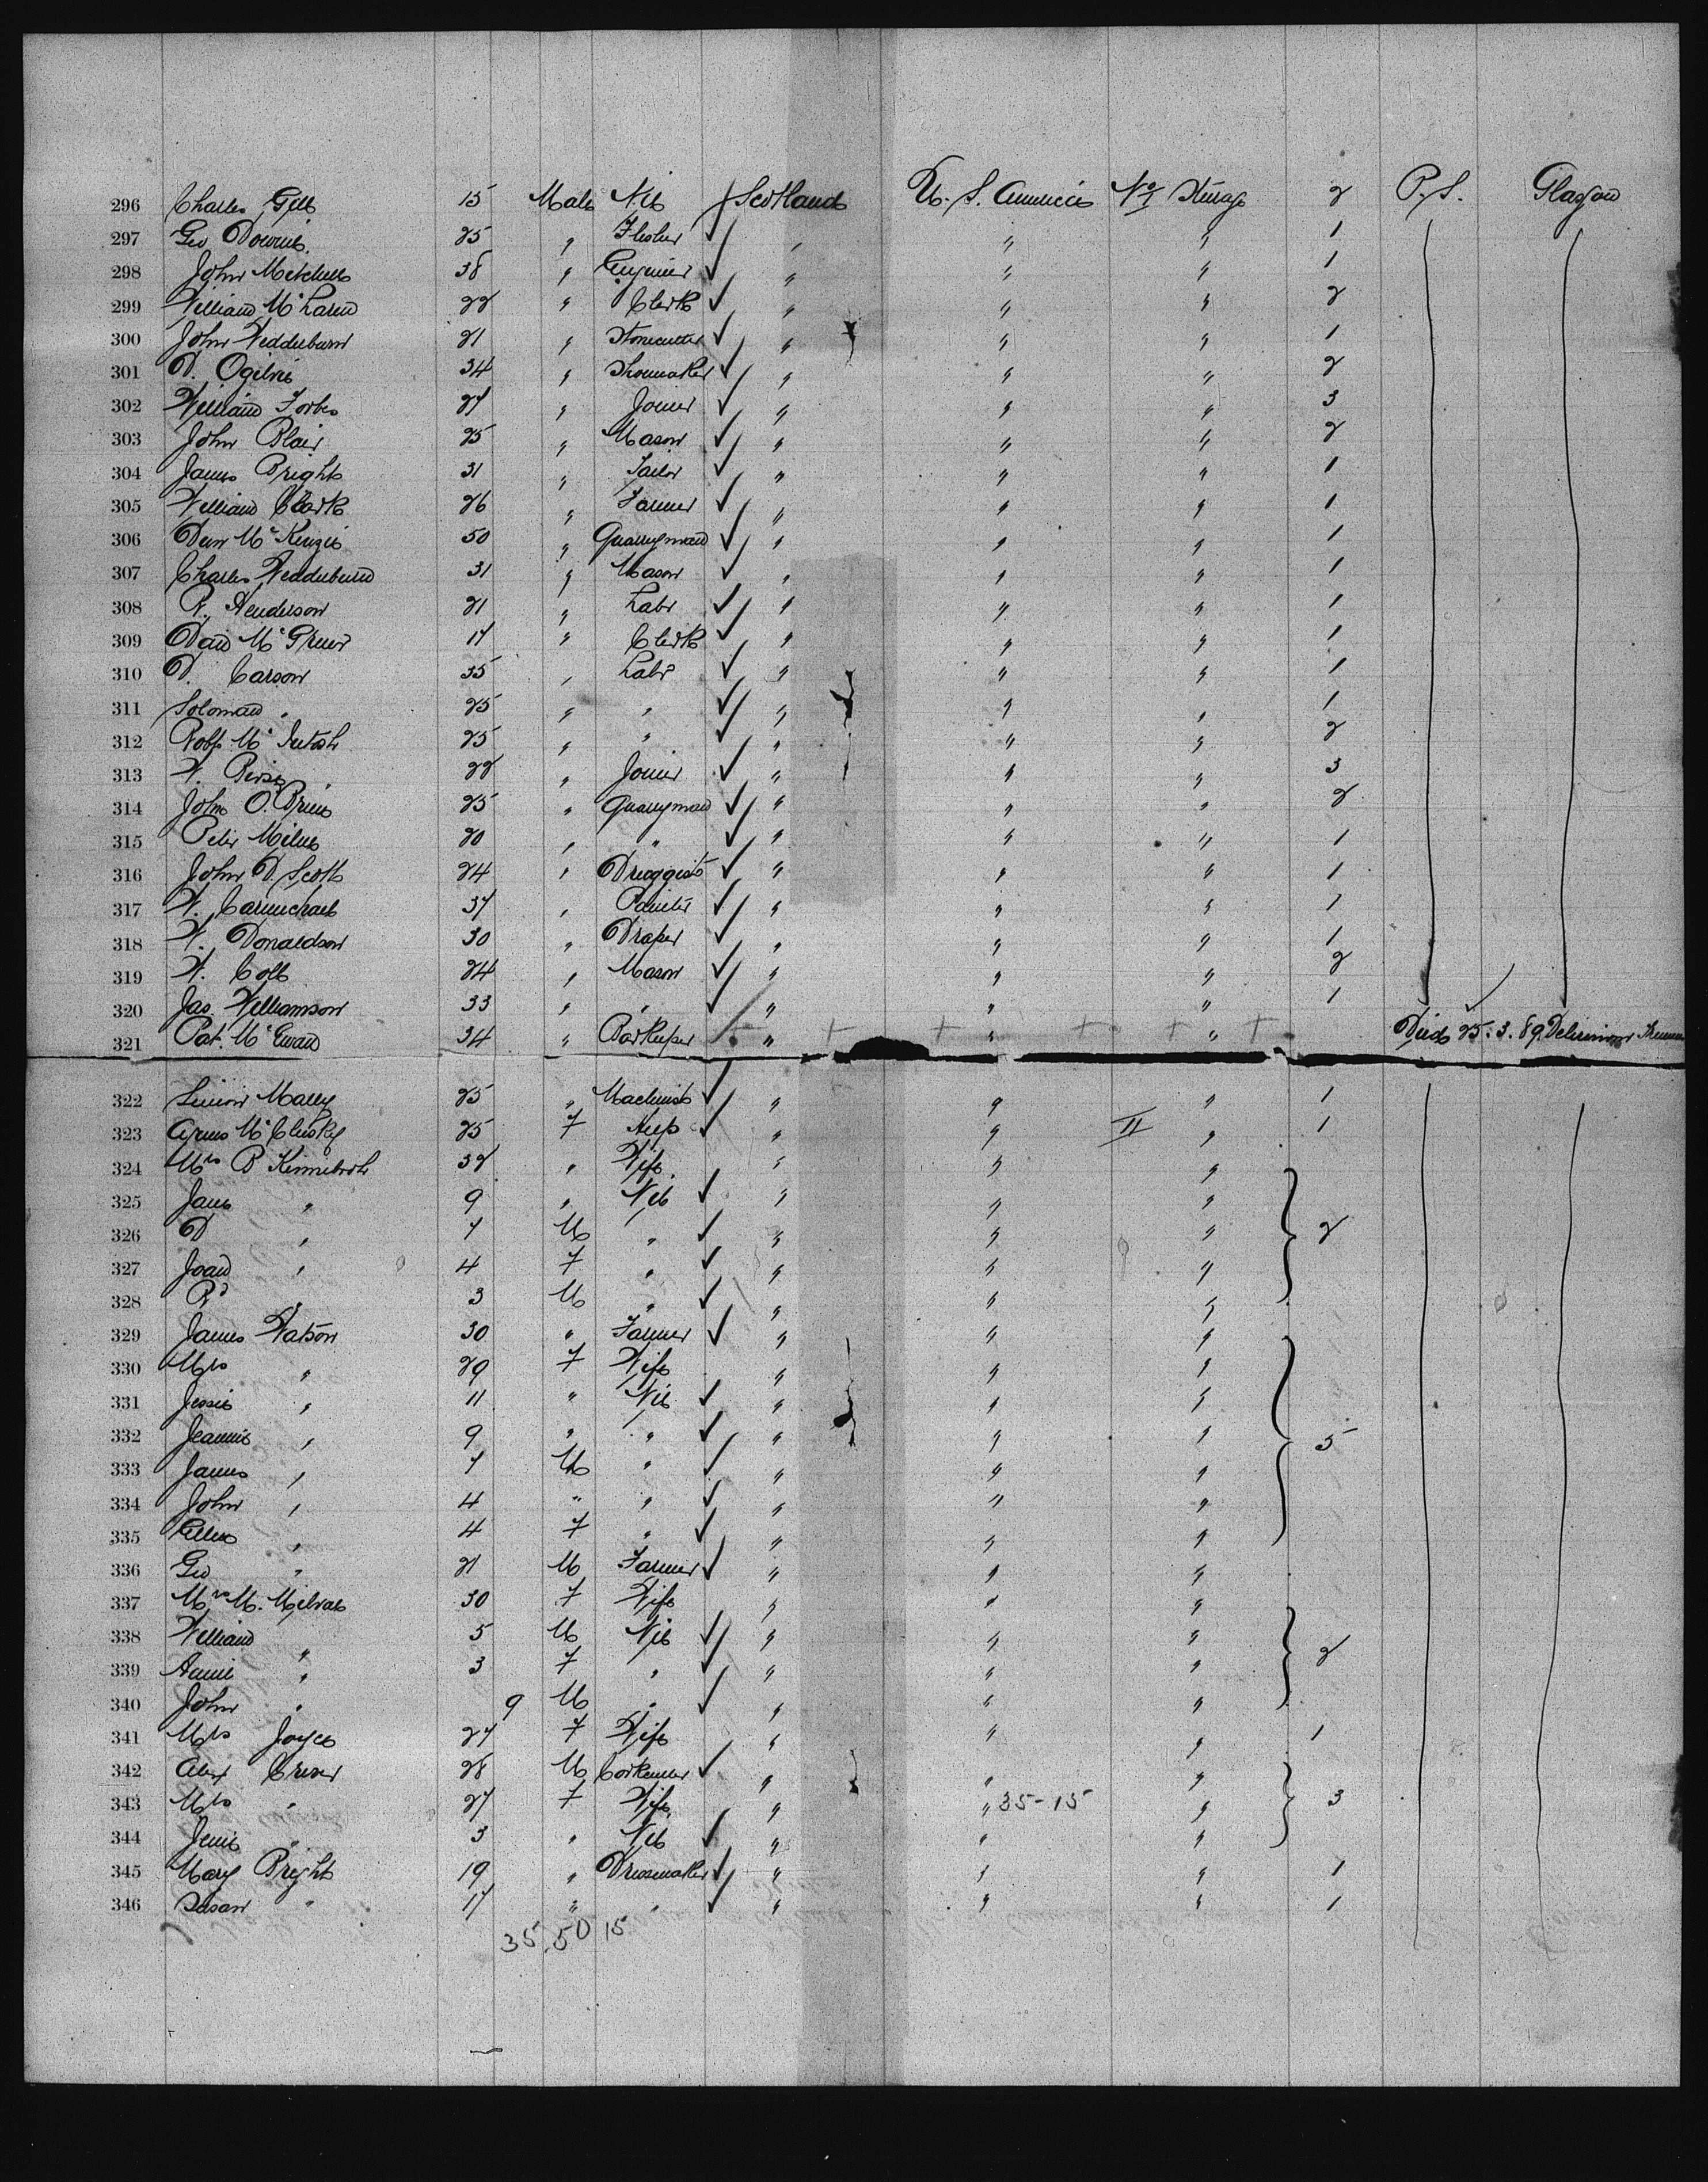 296 Charles Gill 15 Male Nil Scotland U. S. America No I Steerage 2 P. S. Glasgow
297 Geo Downie 25 " Flesher ✓ " " " 1
298 John Mitchell 38 " Engineer ✓ " " " 1
299 William McLaren 22 " Clerk ✓ " " " 2
300 John Wedderburn 21 " Stonecutter ✓ " " " 1
301 D. Ogilvie 34 " Shoemaker ✓ " " " 2
302 William Forbes 27 " Joiner ✓ " " " 3
303 John Blair 25 " Mason ✓ " " " 2
304 James Bright 31 " Tailor ✓ " " " 1
305 William Clark 26 " Farmer ✓ " " " 1
306 Dun McKenzie 50 " Quarryman ✓ " " " 1
307 Charles Wedderburn 31 " Mason ✓ " " " 1
308 R. Henderson 21 " Labr ✓ " " " 1
309 Dan Mc 17 " Clerk ✓ " " " 1
310 D. Carson 35 " Labr ✓ " " " 1
311 Soloman " 25 " " ✓ " " " 1
312 Robt. McIntosh 25 " " ✓ " " " 2
313 W. 22 " Joiner ✓ " " " 3
314 John O. Brien 25 " Quarryman ✓ " " " 2
315 Peter Milne 20 " " ✓ " " " 1
316 John D. Scott 24 " Druggist ✓ " " " 1
317 W. Carmichael 37 " Painter ✓ " " " 1
318 W. Donaldson 30 " Draper ✓ " " " 1
319 W. Coll 24 " Mason ✓ " " " 2
320 Jas. Williamson 33 " " ✓ " " " 1
321 Pat. McEwan 34 " Barkeeper " + + " + + " + Died 25.3.89. Delirium
322 Simon Mally 25 " Machinist ✓ " " " 1
323 Agnes McClusky 25 F ✓ " " II " 1
324 Mrs B 32 " Wife " " "
325 Jane " 9 " Nil ✓ " " "
326 D " 7 M " ✓ " " " 2
327 Joan " 4 F " ✓ " " "
328 Rd " 3 M " ✓ " " "
329 James Watson 30 " Farmer ✓ " " "
330 Mrs " 29 F Wife " " "
331 Jessie " 11 " Nil ✓ " " "
332 Jeannie " 9 " " ✓ " " " 5
333 James " 7 M " ✓ " " "
334 John " 4 " " ✓ " " "
335 Ellen " 4 F " ✓ " " "
336 Geo " 21 M Farmer ✓ " " "
337 Mrs M. 30 F Wife " " "
338 William " 5 M Nil ✓ " " "
339 Annie " 3 F " ✓ " " " 2
340 John " 9 M " ✓ " " "
341 Mrs Joyce 27 F Wife " " " 1
342 Alex 28 M ✓ " " "
343 Mrs " 27 F Wife " " 35-15 " 3
344 3 " Nil ✓ " " "
345 Mary Bright 19 " Dressmaker ✓ " " " 1
346 Susan " 17 " " ✓ " " " 1
35.50 15